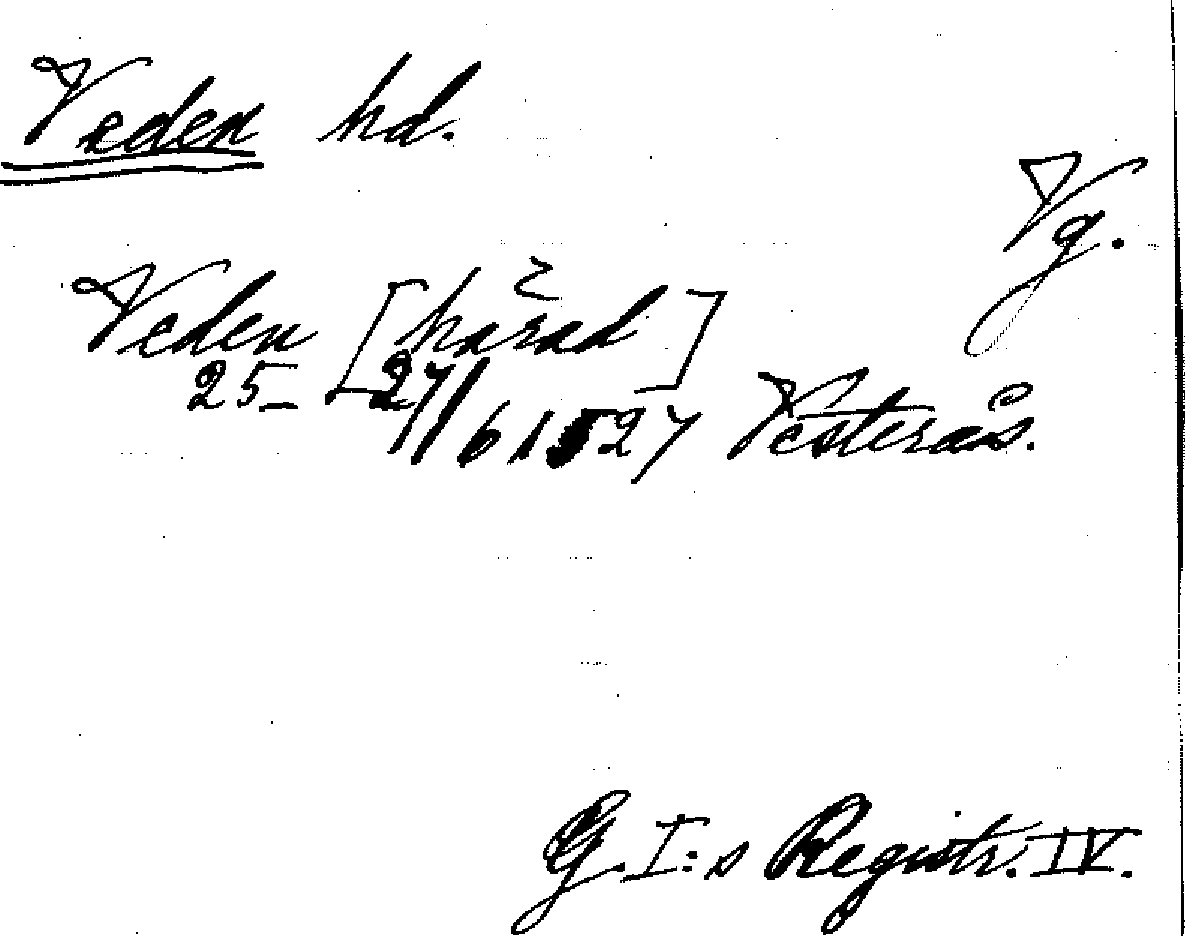 Veden hd.
Vg.
Veden [härad]
25-27/6 1527 Vesterås.
G.I:s Registr. IV.